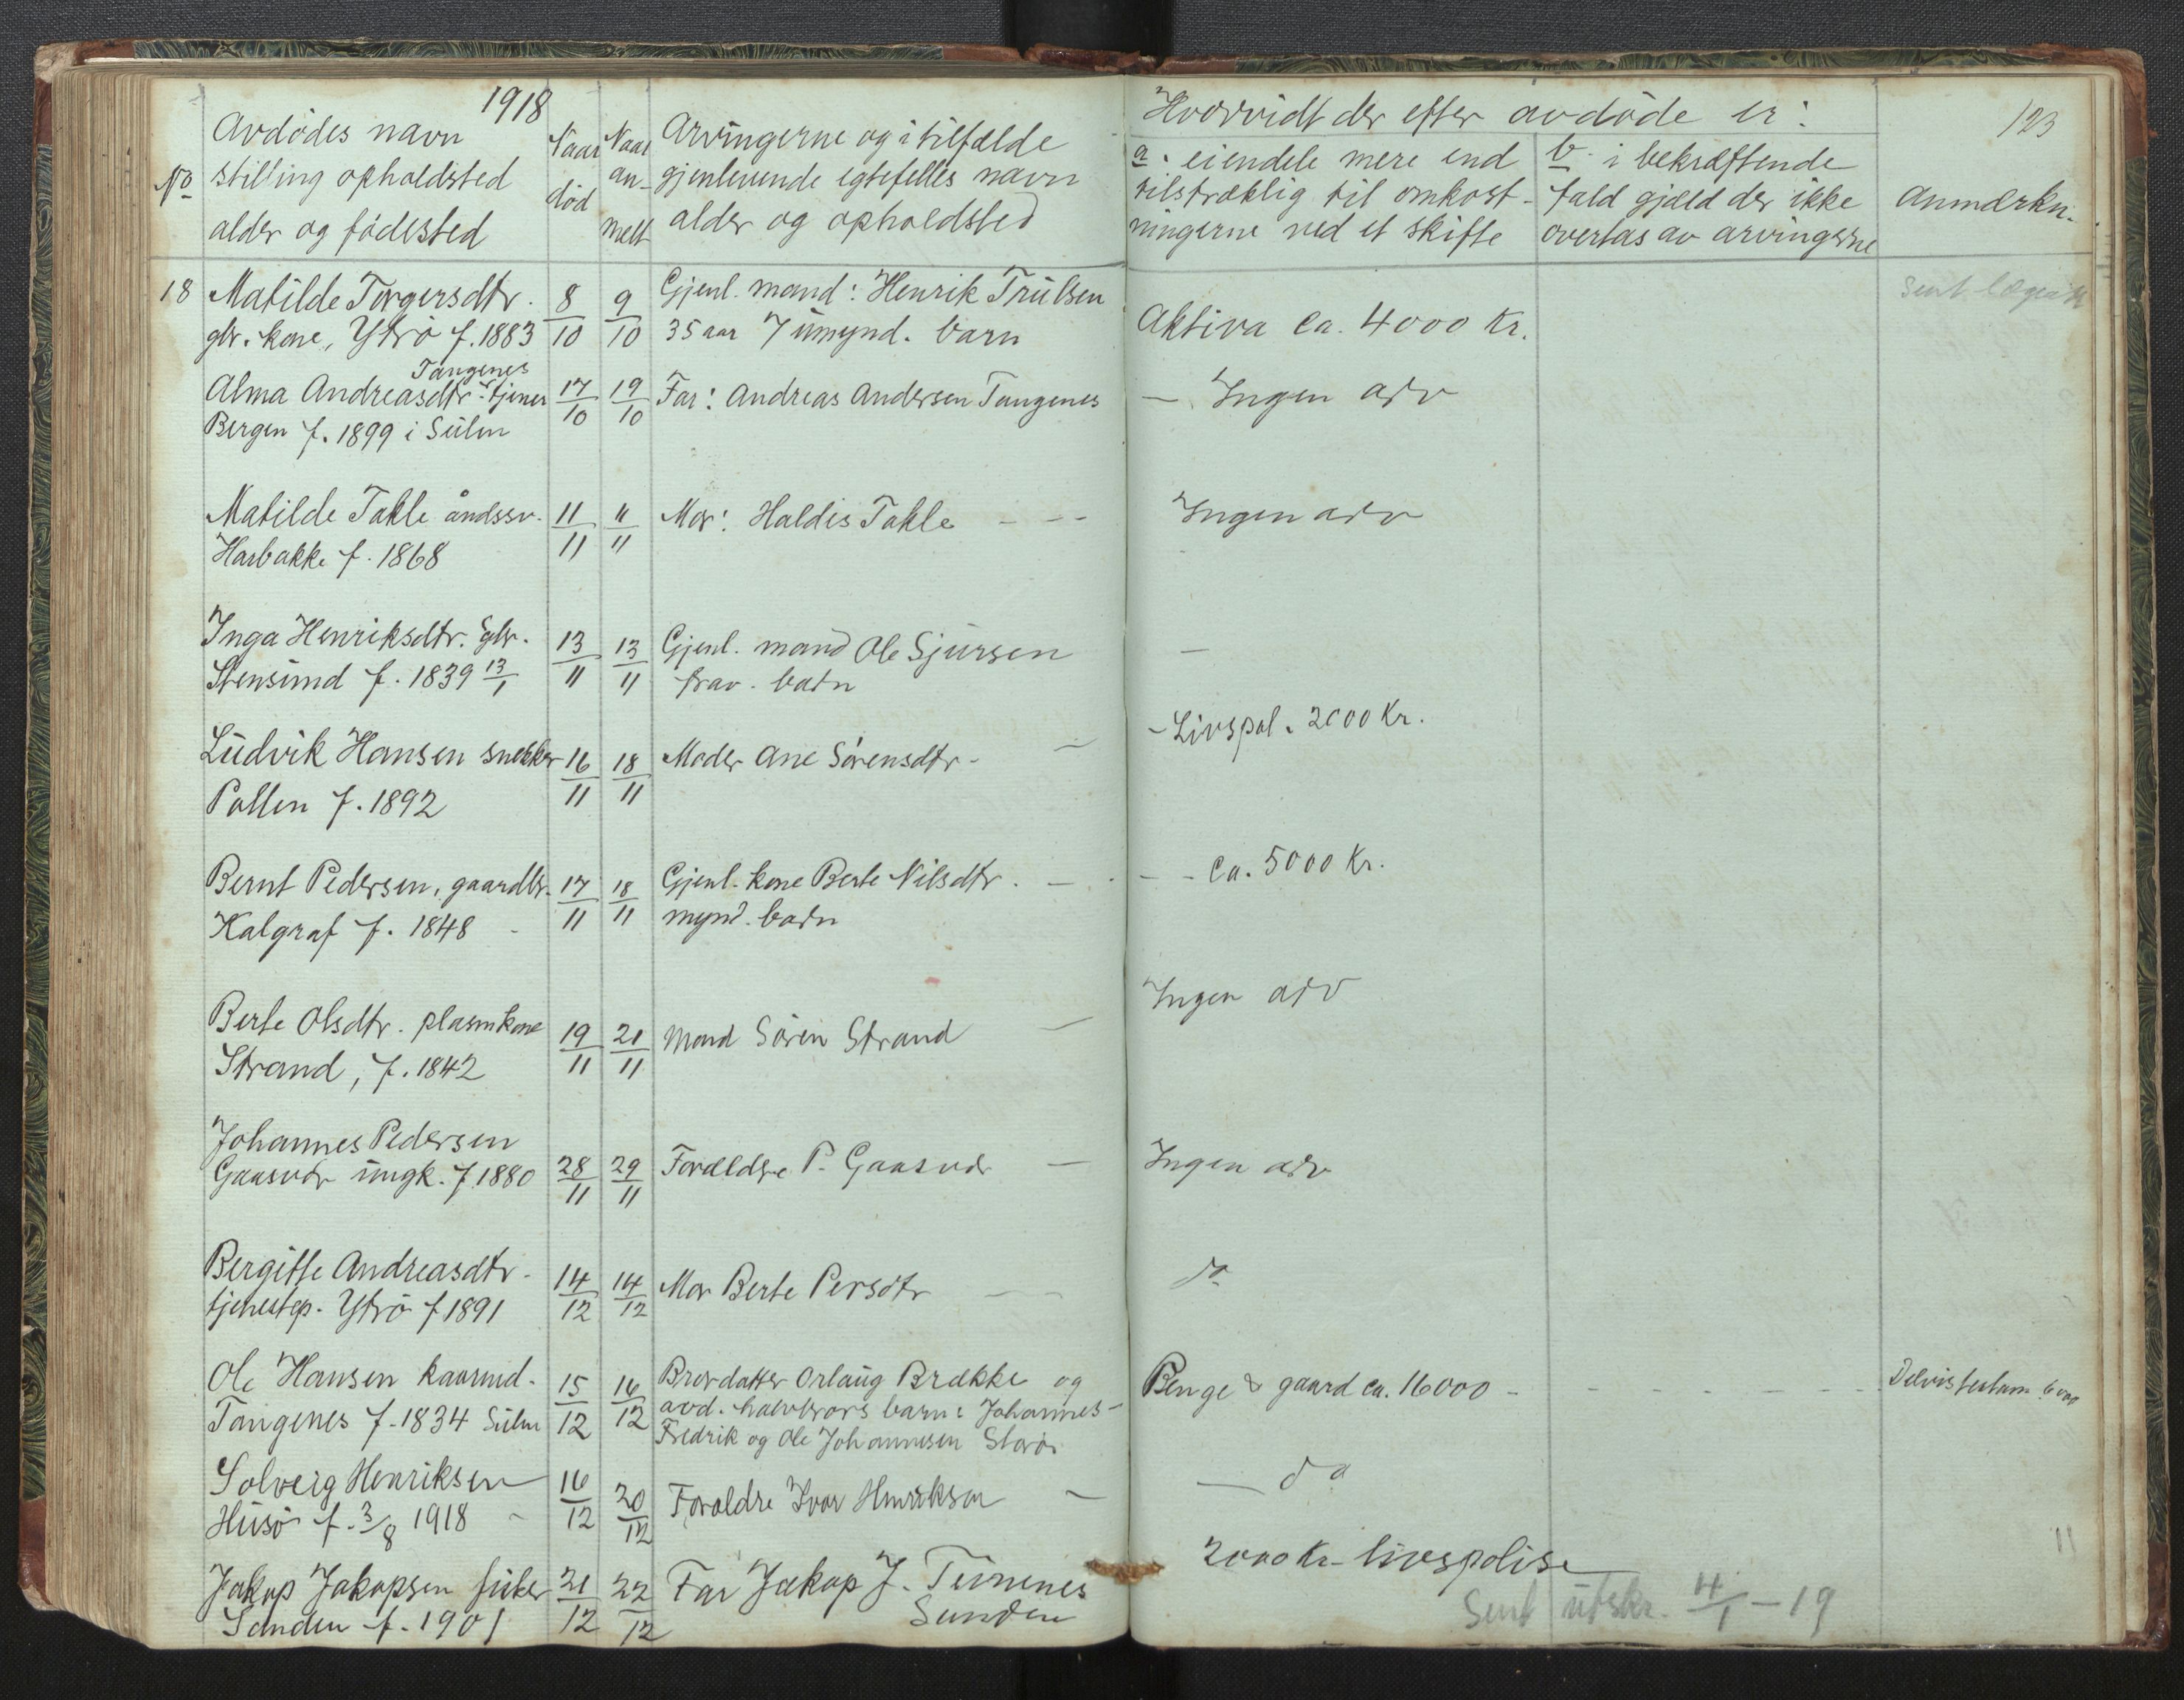 1918
No
Avdødes navn
stilling opholdsted
alder og fødested
Naar død
Naar an-melt
Arvingerne og i tilfælde
gjenlevende egtefelles navn
alder og opholdsted
Hvorvidt der efter avdøde er:
a. eiendele mere end
tilstræklig til omkost-
ningerne ved et skifte
b. i bekræftende
fald gjæld der ikke
overtas av arvingerne
Anmærkn.
123
18 Matilde Torgersdtr. 8/10 9/10 Gjenl. mand: Henrik Trulsen
gbr. kone, Ytrø f. 1883 35 aar 7 umynd. barn
Aktiva ca. 4000 Kr.
Sent
Tangenes
Alma Andreasdtr tjener 17/10 19/10 Far: Andreas Andersen Tangenes
Bergen f. 1899 i Sulen
— Ingen arv
Matilde Takle åndssv. 11/11 11/11 Mor: Haldis Takle - - -
Harbakke f. 1868
Ingen arv
Inga Henriksdtr. gbr. 13/11 13/11 Gjenl. mand Ole Sjursen
Stensund f. 1839 13/1 frav. barn
—
Ludvik Hansen snekker 16/11 18/11 Moder Ane Sørensdtr -
Pollen f. 1892
- Livspol. 2000 Kr.
Bernt Pedersen, gaardbr. 17/11 18/11 Gjenl. kone Berte Nilsdtr. -
Kalgraf f. 1848 mynd. barn
- - Ca. 5000 Kr.
Berte Olsdtr. plasmkone 19/11 21/11 Mand Søren Strand
Strand, f. 1842
Ingen arv
Johannes Pedersen
Gaasvær ungk. f 1880 28/11 29/11 Forældre P. Gaasvær —
Ingen arv
Bergitte Andreasdtr. 14/12 14/12 Mor Berte Persdtr
tjenestep. Ytrø f 1891
do
Ole Hansen kaarmd. 15/12 16/12 Brordatter Orlaug Brække og
Tangenes f. 1834 Sulen avd. halvbrors barn: Johannes-
Fredrik og Ole Johannesen Storø.
Penge & gaard ca. 16000 - - - - - - - Delvis testam. 6000
Solveig Henriksen 16/12 20/12 Foraldre Ivar Henriksen —
Husø f. 3/8 1918 -
— do
Jakop Jakopsen fisker 21/12 22/12 Far Jakop J. Teinenes
Sanden f. 1901 Sanden
2000 Kr. livspolise
Sent utskr. 4/1 - 19